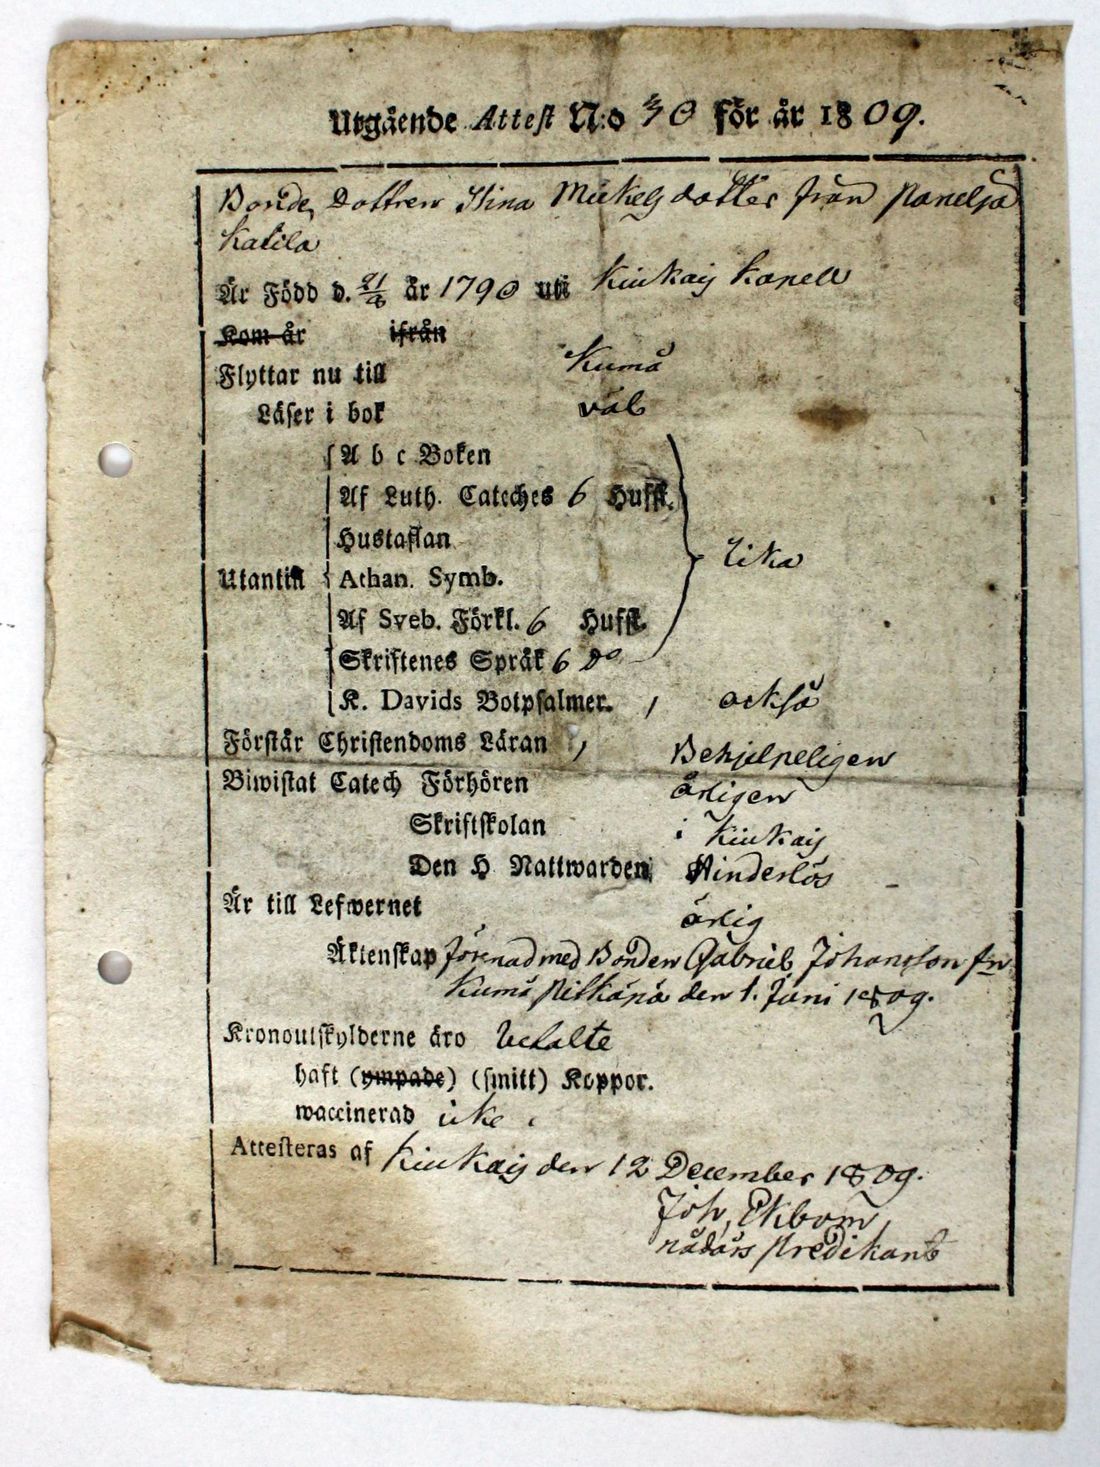 Utgående Attest N:o 30 för år 1809.
Bonde Dottren Stina Mickels dotter från Panelja
Katila
Är Född d. 21/8 år 1790 uti Kiukais Kapell
Kom år ifrån
Flyttar nu till Kumå
Läser i bok väl
A b c Boken
Af Luth. Cateches 6 Hufst.
Hustaflan
Utantill Athan. Symb. lika
Af Sveb. Förkl. 6 Hufst.
Skriftenes Språk 6 do
K. Davids Botpsalmer. också
Förstår Christendoms Läran Behjelpeligen
Biwistat Catech Förhören årligen
Skriftskolan i Kiukais
Den H Nattwarden Hinderlös
Är till Lefwernet ärlig
Äktenskap förenad med Bonden Gabriel Johansson frn
Kumå Pitkäpä den 1. Juni 1809.
Kronoutskylderne äro betalte
haft (ympade) (smitt) Koppor.
waccinerad icke
Attesteras af Kiukais den 12 December 1809.
Joh, Ekbom,
nådårs Predikant